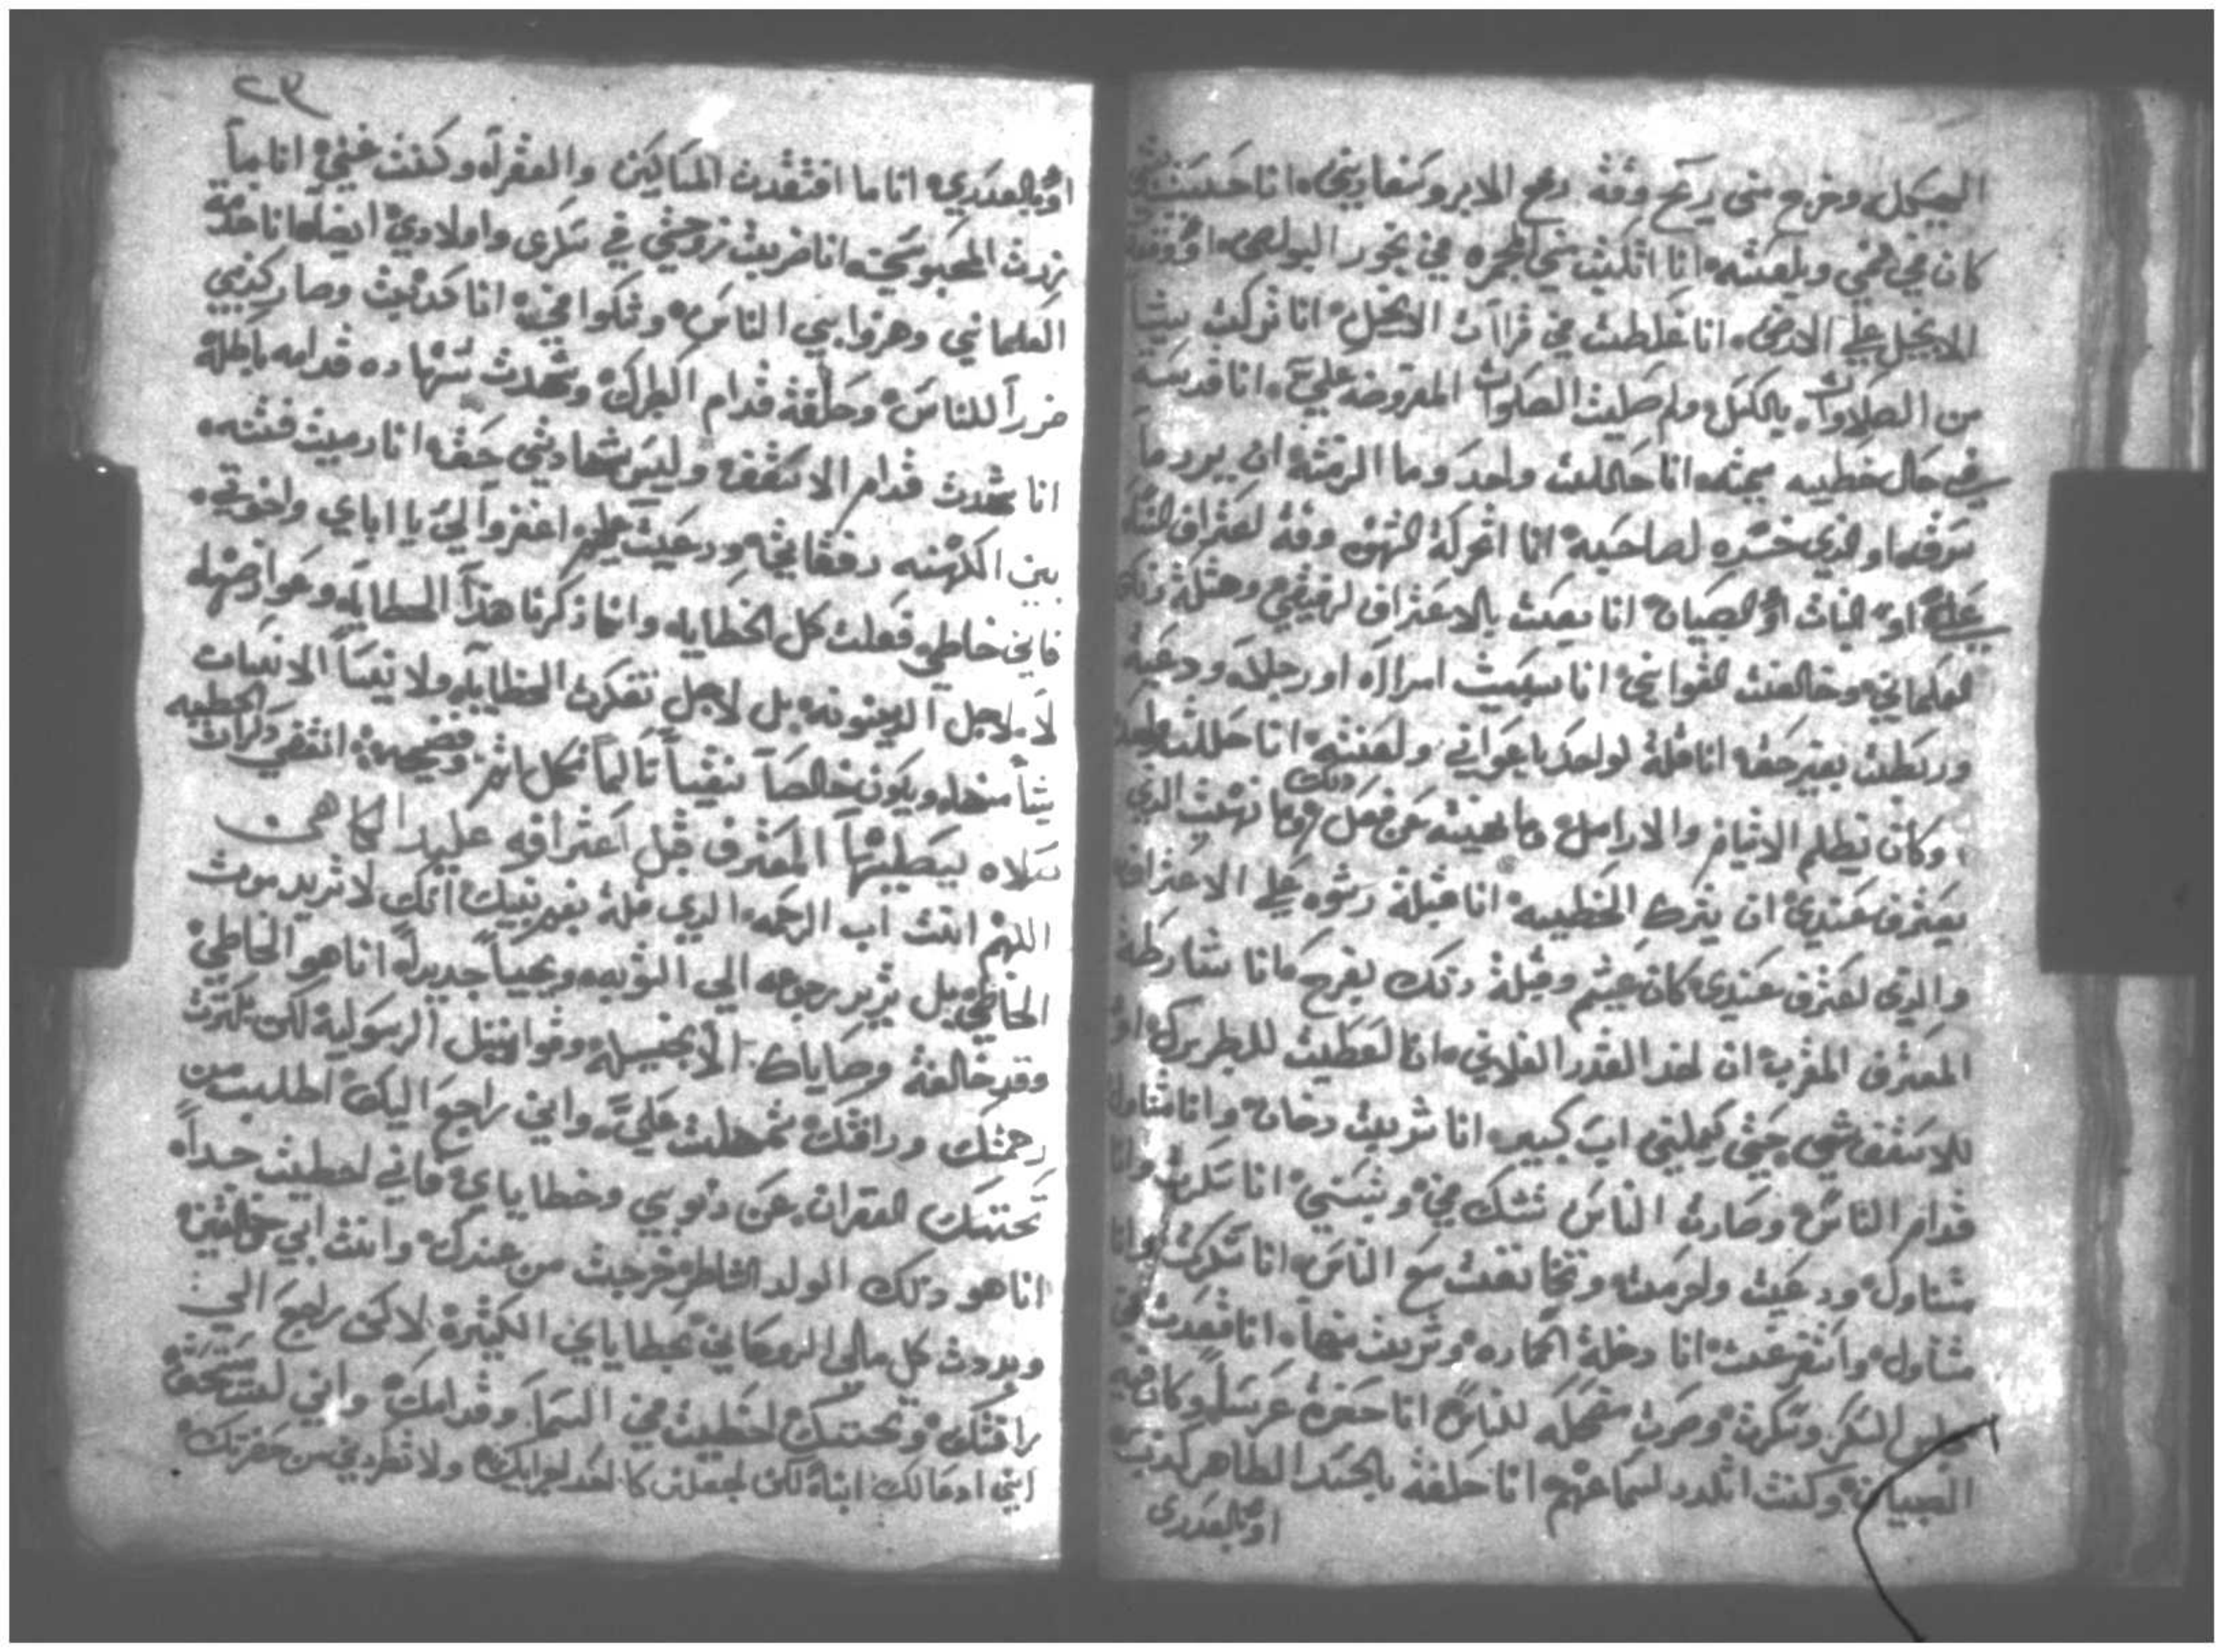 الهيكل وخرج مني ريح وقة رفع الابروسفارين انا حسبت شي
كان في فمي وبلعته انا اتكيت في المجمره في بخور البولص اوقفة
الانجيل علي الارض انا غلطت في قراات الانجيل انا تركت شياً
من الصلاوات بالكسل ولم صليت الصلوات المفروضه علي انا قدست
في حال خطيه مميته انا حاللت واحد وما الزمته ان يرد ما
سرقه او الذي خسره لصاحبه انا اتحركة الشهوه وقة اعتراف النسا
علي او البنات او الصبيان انا بعت بالاعتراف لرفيقي وهتكة
العلماني وخالفت القوانين انا سبيت امراه او رجلاً ودعية
وربطت بغير حقه انا قلة لواحد يا عواني ولعنته انا حاللت واحد
وكان يظلم الايتام والارامل وما نهيته عن فعل ذلك وما نهيت الذي
يعترف عندي ان يترك الخطيه انا قبلة رشوه علي الاعتراف
والذي اعترف عندي كان غشيم وقبلة ذلك بفرح وانا شارطة
المعترف المغربه ان اخد القدر الفلاني انا اعطيت للبطريرك او
للاسقف شي حتي يعملني اب كبير انا شربت دخان وانا متناول
قدام الناس وصارت الناس تشك في وتسبني انا سكرت وانا
متناول ودعيت ولعنت وتخانقت مع الناس انا سكرت وانا
متناول واستفرغت انا دخلة الخماره وشربت فيها انا قعدت في
مجلس السكر وسكرت وصرت مضحكه للناس انا حضرة عرس وكان فيه
الصبيان وكنت اتلدد لسماعهم انا حلفة بالجسد الطاهر كدب
او بالعدري
٢٣
او بالعدري انا ما افتقدت المساكين والفقرآء وكنت غني انا ما
زرت المحبوسين انا ضربت زوجتي في سكري واولادي ايضاً انا خدمة
العلماني وهزوا بي الناس وشكوا في انا كدبت وصار كدبي
ضرراً للناس وحلفة قدام البطرك وشهدت شهاده قدامه باطلة
انا شهدت قدام الاسقف وليس شهادتي حقه انا رميت فتنه
بين الكهنه رفقاي ودعيت عليهم اغفروا لي يا اباي واخوتي
فاني خاطي فعلت كل الخطايا وانما ذكرنا هذا الخطايا وعوارضها
لا لاجل الدينونه بل لاجل تفكرك الخطايا ولا ينسا الانسان
شياً منها ويكون خالصاً نقياً تائباً كل اثم وفضيحه انتقي ذكرات الخطيه
صلاه يعطيها المعترف قبل اعترافه علي يد الكاهن
اللهم انت اب الرحمه الذي قلة بفم نبيك انك لا تريد موت
الخاطي بل تريد رجوعه الي التوبه ويحيا جديداً انا هو الخاطي
وقد خالفة وصاياك الانجيليه وقوانين الرسولية لكن بكثرت
رحمتك ورافتك تمهلت علي واني راجع اليك اطلب من
تحننك الغفران عن دنوبي وخطاياي فاني اخطيت جداً
انا هو ذلك الولد الشاطر خرجت من عندك وانت ابي خالقي
وبددت كل مالي الروحاني بخطاياي الكثيرة لاكن راجع الي
رافتك وتحننك اخطيت في السما وقدامك واني لست مستحق
انني ادعا لك ابناً لكن اجعلني كاحد اجرايك ولا تطردني من حضرتك